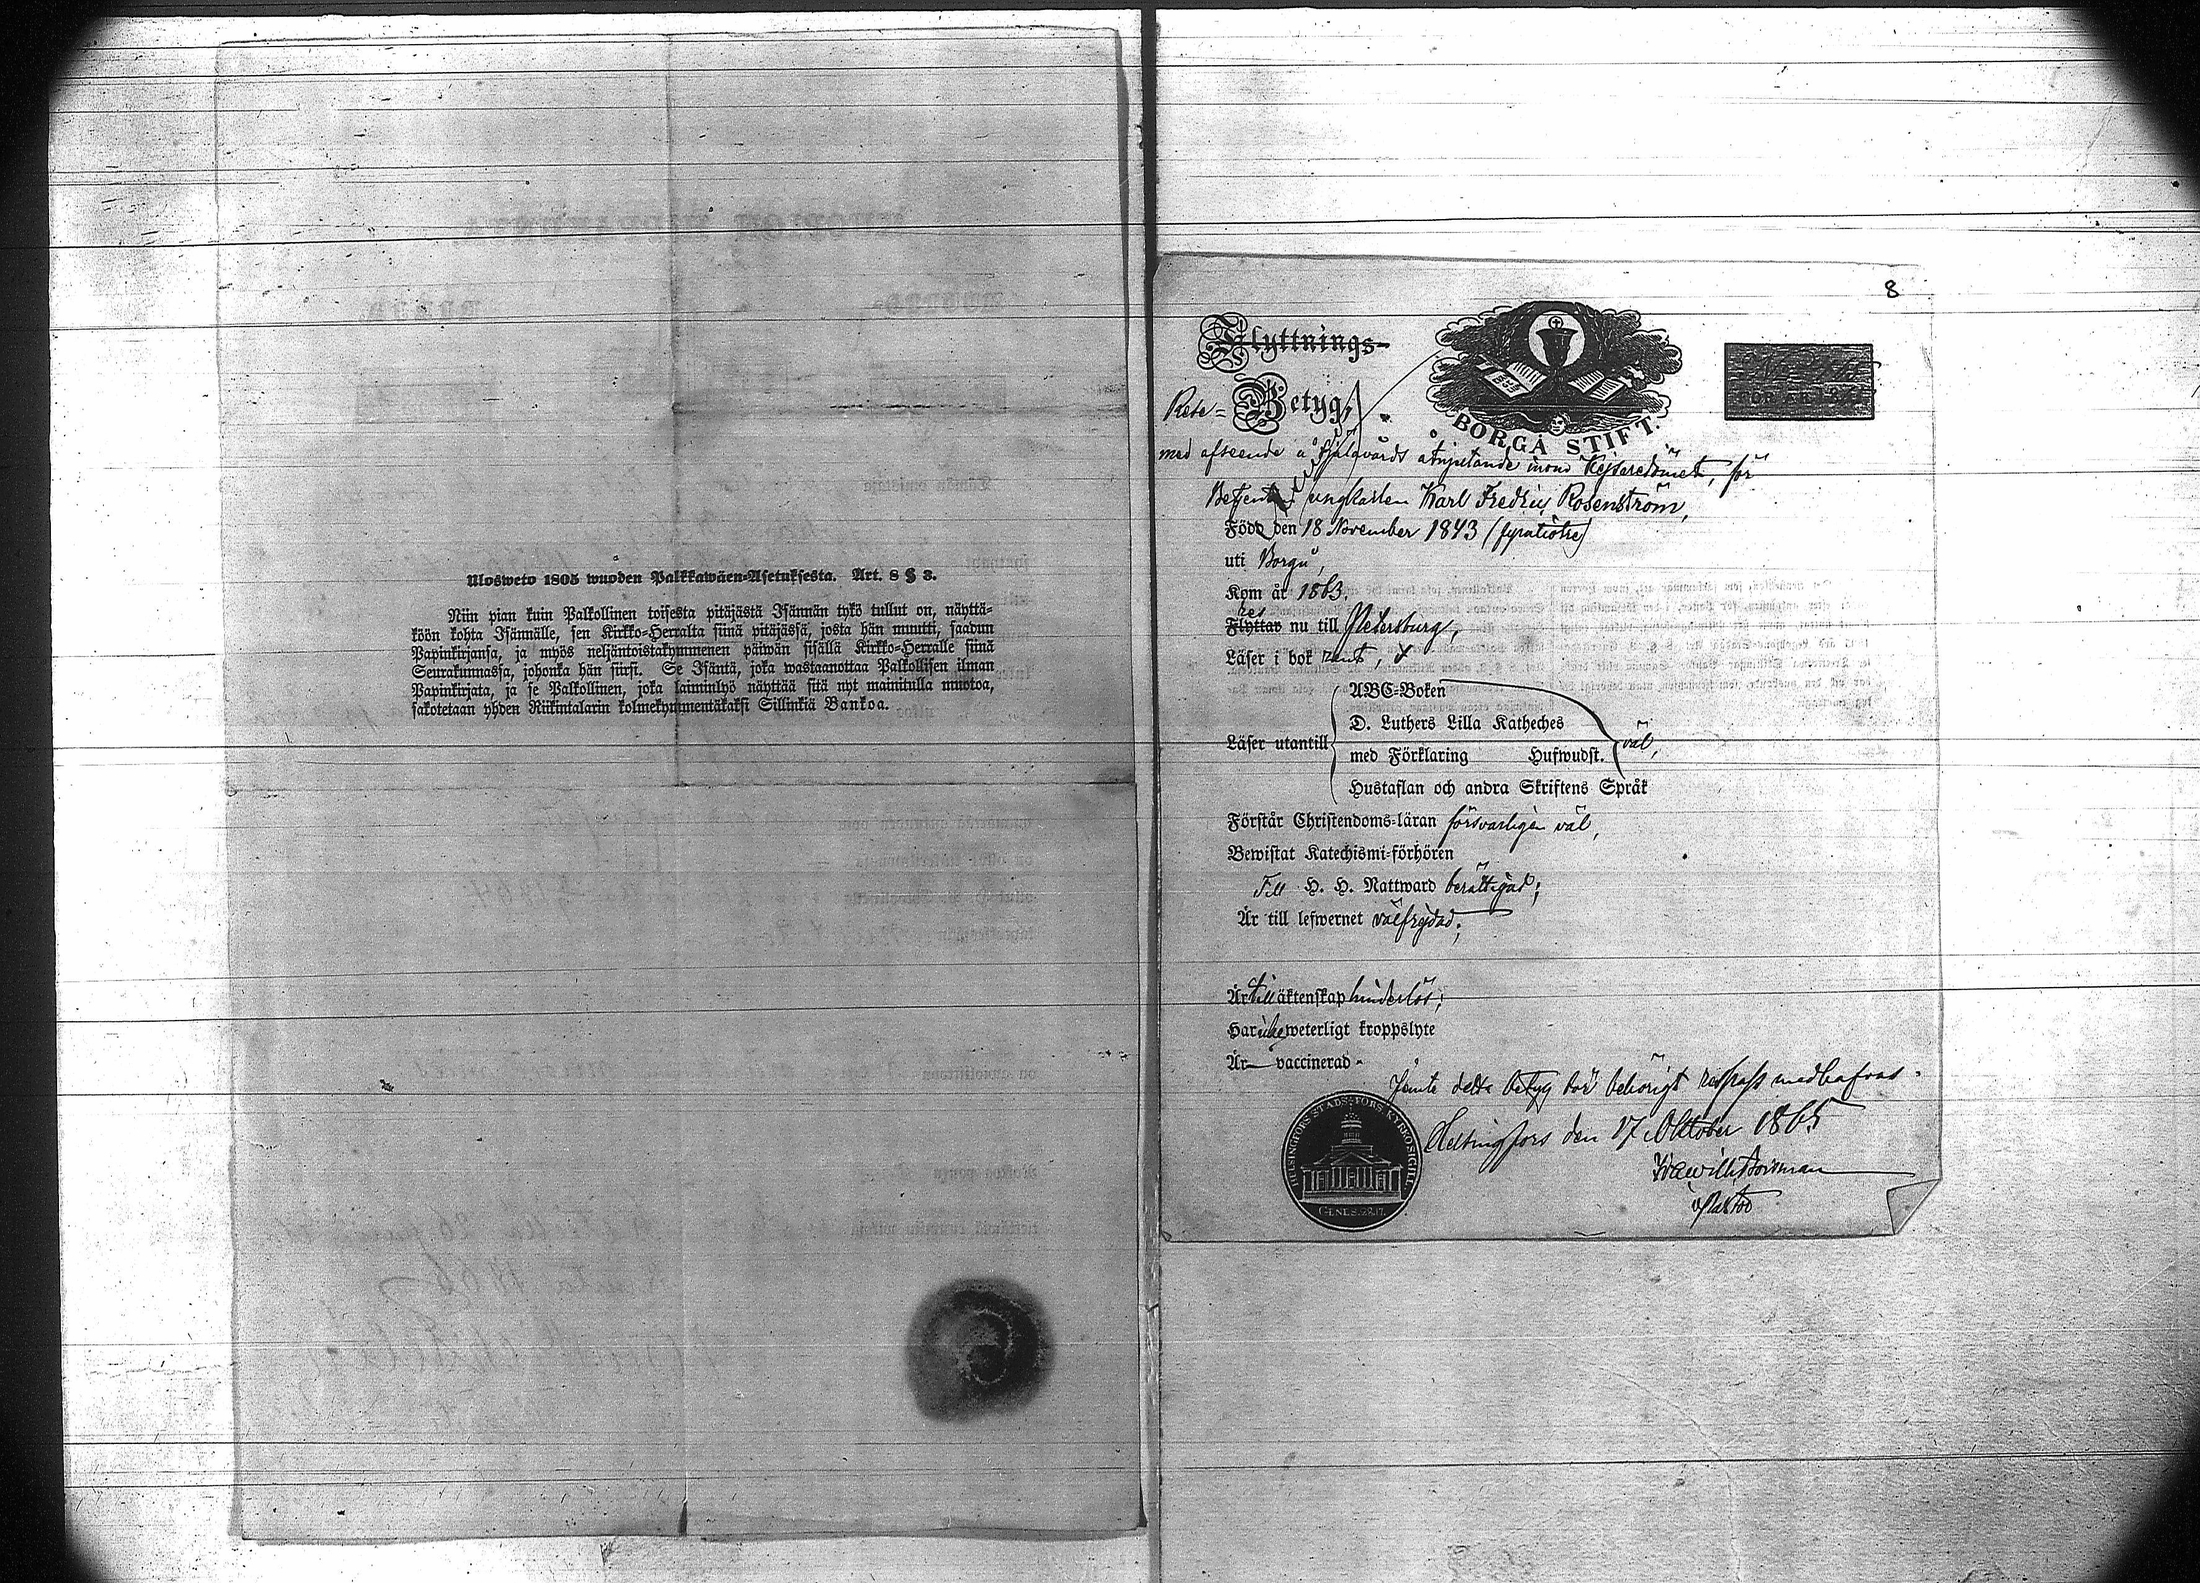 Ulosweto 1805 wuoden Palkkawäen-Asetuksesta. Art. 8 § 3.
Niin pian kuin Palkollinen toisesta pitäjästä Isännän tykö tullut on, näyttä-
köön kohta Isännälle, sen Kirkko-Herralta siinä pitäjässä, josta hän muutti, saadun
Papinkirjansa, ja myös neljäntoistakymmenen päiwän sisällä Kirkko-Herralle siinä
Seurakunnassa, johonka hän siirsi. Se Isäntä, joka wastaanottaa Palkollisen ilman
Papinkirjata, ja se Palkollinen, joka laiminlyö näyttää sitä nyt mainitulla muotoa,
sakotetaan yhden Riikintalarin kolmekymmentäkaksi Sillinkiä Bankoa.
8
Flyttnings-
Rese= Betyg,
BORGÅ STIFT.
med afseende å sjelavårds åtnjutande inom Kejsaredömet, för
Betjenten ungkarlen Karl Fredric Rosenström,
Född den 18 November 1843 (fyratiotre)
uti Borgå,
Kom år 1863.
res
Flyttar nu till Petersburg,
Läser i bok rent,
ABC-Boken
D. Luthers Lilla Katheches
Läser utantill med Förklaring Hufwudst. väl,
Hustaflan och andra Skriftens Språk
Förstår Christendoms-läran försvarligen väl,
Bewistat Katechismi-förhören
Till H. H. Nattward berättigad;
Är till lefwernet välfrejdad;
Är till äktenskap hinderlös;
Har icke weterligt kroppslyte
Är vaccinerad
Jemte detta betyg bör behörigt respass medhafvas.
Helsingfors den 17 Oktober 1865
HELSINGFORS STADS-FÖRS. KYRKOSIGILL
GENES. 28.17.
v Pastor